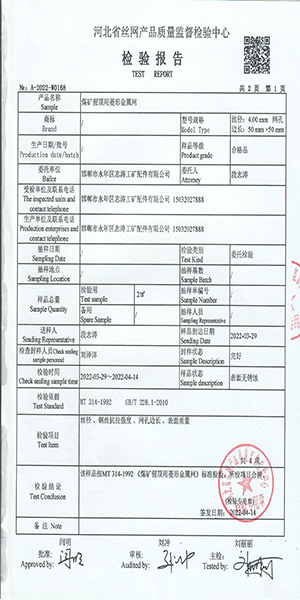 河北省丝网产品质量监督检验中心
检 验 报 告
TEST REPORT
№: A-2022-W0168 共 2 页 第 1 页
产品名称 Sample 煤矿锁顶用菱形金属网
商标 Brand / 型号规格 Model Type 丝径: 4.00 mm 网孔边长: 50 mm×50 mm
生产日期/批号 Production date/batch / 样品等级 Product grade 合格品
委托单位 Bailor 邯郸市永年区志涛工矿配件有限公司 委托人 Attorney 段志涛
受检单位及联系电话 The inspected units and contact telephone 邯郸市永年区志涛工矿配件有限公司 15032027888
生产单位及联系电话 Production enterprises and contact telephone 邯郸市永年区志涛工矿配件有限公司 15032027888
抽样日期 Sampling Date / 检验类别 Test Kind 委托检验
抽样地点 Sampling Location / 抽样基数 Sample Batch /
样品总量 Sample Quantity 检验用 Test sample 2㎡ 抽样单编号 Sample Number /
备用 Spare Sample / 抽样人员 Sampling Representative /
送样人 Sending Representative 段志涛 样品到达日期 Sending Date 2022-03-29
检查封样人员 Check sealing sample personnel 刘泽洋 封样状态 Sample description 完好
检验时间 Check sealing sample time 2022-03-29~2022-04-14 样品状态 Sample description 表面无锈蚀
检验依据 Test Standard MT 314-1992 GB/T 228.1-2010
检验项目 Test Item 丝径、钢丝抗拉强度、网孔边长、表面质量
共 4 项
检验结论 Test Conclusion 该样品按MT 314-1992《煤矿假顶用菱形金属网》标准检验，所检项目合格。
(检验专用章)
签发日期: 2022-04-14
备 注 Note
闫明 刘冲 刘丽丽
批准: Approved by: 审核: Audited by: 主检: Tested by: